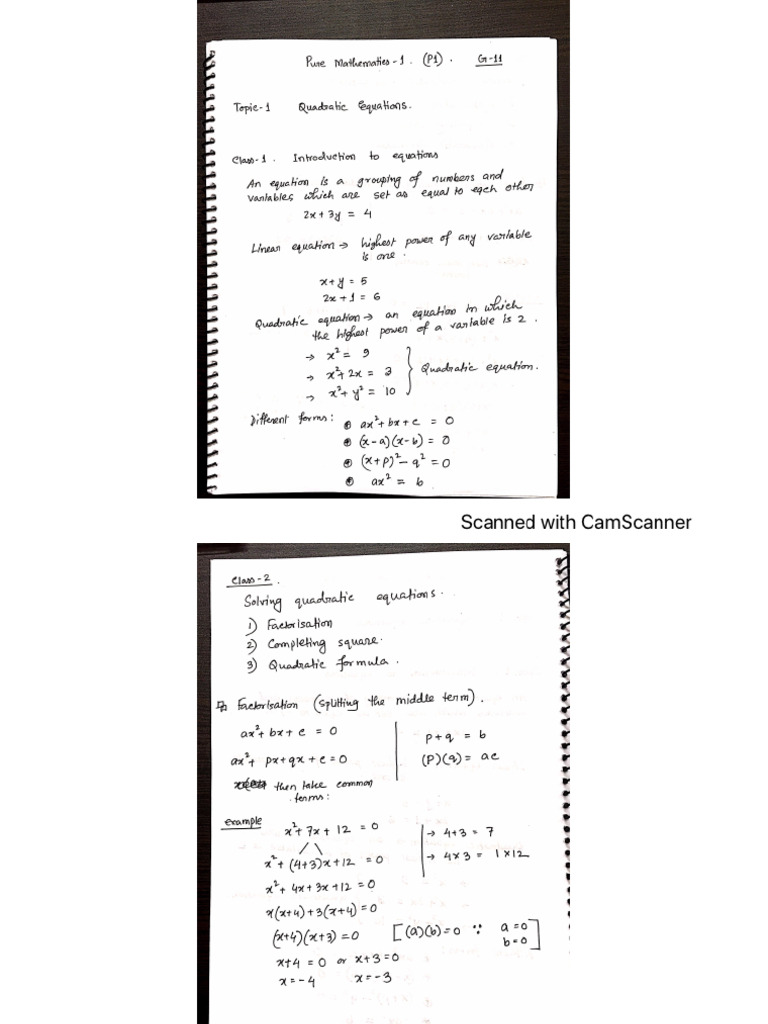 Pure Mathematics-1. (P1). G-11
Topic-1 Quadratic Equations.
Class-1. Introduction to equations
An equation is a grouping of numbers and
variables which are set as equal to each other
2x + 3y = 4
Linear equation → highest power of any variable
is one.
x + y = 5
2x + 1 = 6
Quadratic equation → an equation in which
the highest power of a variable is 2.
→ x² = 9
→ x² + 2x = 3
→ x² + y² = 10
} Quadratic equation.
Different forms: ax² + bx + c = 0
(x-a)(x-b) = 0
(x+p)² - q² = 0
ax² = b
Scanned with CamScanner
Class-2.
Solving quadratic equations.
1) Factorisation
2) Completing square.
3) Quadratic formula.
Factorisation (splitting the middle term).
ax² + bx + c = 0
p + q = b
ax² + px + qx + c = 0
(p)(q) = ac
then take common
terms:
example
x² + 7x + 12 = 0
→ 4+3 = 7
x² + (4+3)x + 12 = 0
→ 4x3 = 1x12
x² + 4x + 3x + 12 = 0
x(x+4) + 3(x+4) = 0
(x+4)(x+3) = 0 [(a)(b)=0 ∵ a=0
b=0]
x+4 = 0 or x+3 = 0
x = -4 x = -3